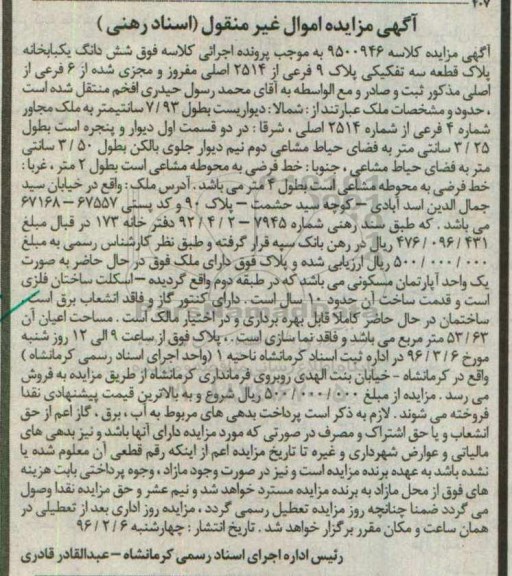 ۴۰۷
آگهی مزایده اموال غیر منقول (اسناد رهنی)
آگهی مزایده کلاسه ۹۵۰۰۹۴۶ به موجب پرونده اجرائی کلاسه فوق شش دانگ یکبابخانه
پلاک قطعه سه تفکیکی پلاک ۹ فرعی از ۲۵۱۴ اصلی مفروز و مجزی شده از ۶ فرعی از
اصلی مذکور ثبت و صادر و مع الواسطه به آقای محمد رسول حیدری افخم منتقل شده است
، حدود و مشخصات ملک عبارتند از : شمالا : دیواریست بطول ۷/۹۳ سانتیمتر به ملک مجاور
شماره ۴ فرعی از شماره ۲۵۱۴ اصلی ، شرقا : در دو قسمت اول دیوار و پنجره است بطول
۳/۲۵ سانتی متر به فضای حیاط مشاعی دوم نیم دیوار جلوی بالکن بطول ۳/۵۰ سانتی
متر به فضای حیاط مشاعی ، جنوبا : خط فرضی به محوطه مشاعی است بطول ۲ متر ، غربا :
خط فرضی به محوطه مشاعی است بطول ۴ متر می باشد . آدرس ملک : واقع در خیابان سید
جمال الدین اسد آبادی – کوچه سید حشمت – پلاک ۹۰ و کد پستی ۶۷۵۵۷ – ۶۷۱۶۸
می باشد . که طبق سند رهنی شماره ۷۹۴۵ – ۹۲/۴/۲ دفتر خانه ۱۷۳ در قبال مبلغ
۴۷۶/۰۹۶/۴۳۱ ریال در رهن بانک سپه قرار گرفته و طبق نظر کارشناس رسمی به مبلغ
۵۰۰/۰۰۰/۰۰۰ ریال ارزیابی شده و پلاک فوق دارای ملک فوق در حال حاضر به صورت
یک واحد آپارتمان مسکونی می باشد که در طبقه دوم واقع گردیده – اسکلت ساختان فلزی
است و قدمت ساخت آن حدود ۱۰ سال است . دارای کنتور گاز و فاقد انشعاب برق است
ساختمان در حال حاضر کاملاً قابل بهره برداری و در اختیار مالک است . مساحت اعیان آن
۵۳/۶۳ متر مربع می باشد و فاقد نما سازی است . ، پلاک فوق از ساعت ۹ الی ۱۲ روز شنبه
مورخ ۹۶/۳/۶ در اداره ثبت اسناد کرمانشاه ناحیه ۱ (واحد اجرای اسناد رسمی کرمانشاه )
واقع در کرمانشاه – خیابان بنت الهدی روبروی فرمانداری کرمانشاه از طریق مزایده به فروش
می رسد . مزایده از مبلغ ۵۰۰/۰۰۰/۰۰۰ ریال شروع و به بالاترین قیمت پیشنهادی نقدا
فروخته می شوند . لازم به ذکر است پرداخت بدهی های مربوط به آب ، برق ، گاز اعم از حق
انشعاب و یا حق اشتراک و مصرف در صورتی که مورد مزایده دارای آنها باشد و نیز بدهی های
مالیاتی و عوارض شهرداری و غیره تا تاریخ مزایده اعم از اینکه رقم قطعی آن معلوم شده یا
نشده باشد به عهده برنده مزایده است و نیز در صورت وجود مازاد ، وجوه پرداختی بابت هزینه
های فوق از محل مازاد به برنده مزایده مسترد خواهد شد و نیم عشر و حق مزایده نقدا وصول
می گردد ضمنا چنانچه روز مزایده تعطیل رسمی گردد ، مزایده روز اداری بعد از تعطیلی در
همان ساعت و مکان مقرر برگزار خواهد شد . تاریخ انتشار : چهارشنبه ۹۶/۲/۶
رئیس اداره اجرای اسناد رسمی کرمانشاه – عبدالقادر قادری